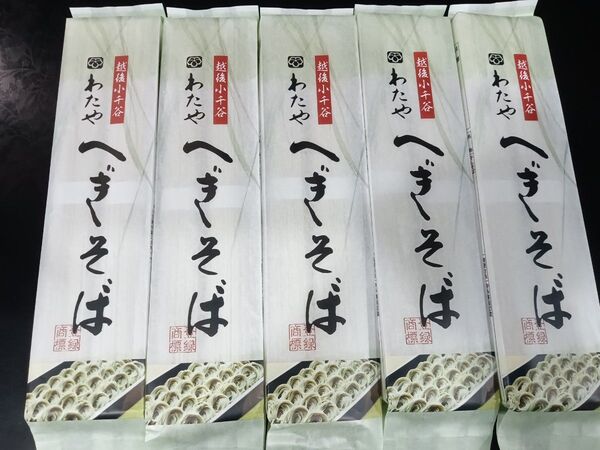 越後小千谷
わたや
へぎそば
登録商標
越後小千谷
わたや
へぎそば
登録商標
越後小千谷
わたや
へぎそば
登録商標
越後小千谷
わたや
へぎそば
登録商標
越後小千谷
わたや
へぎそば
登録商標